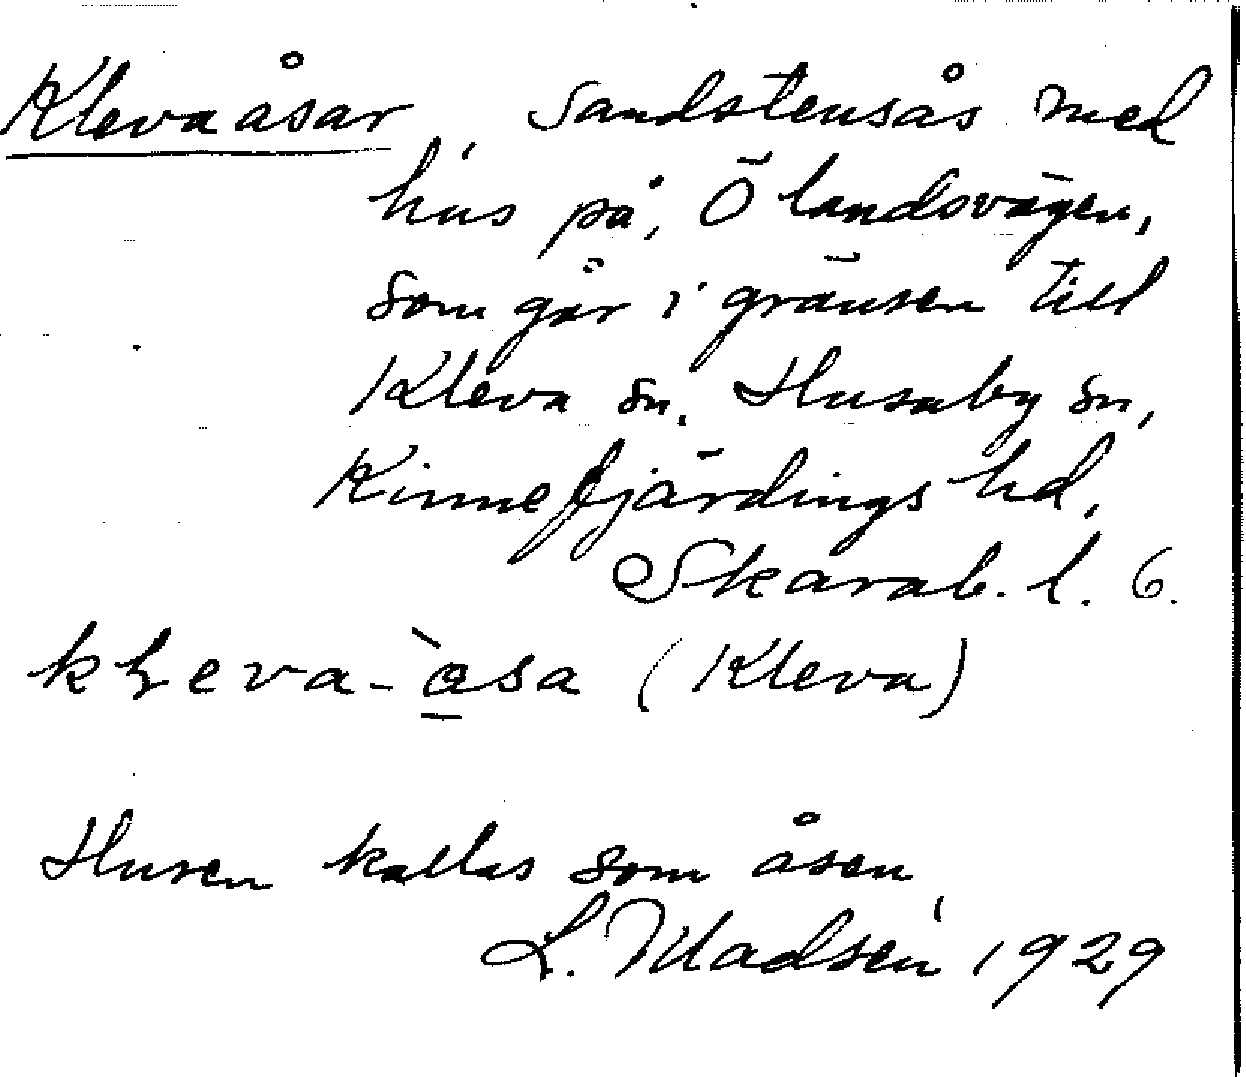 Klevaåsar, Sandstensås med
hus på, Ö landsvägen,
som går i gränsen till
Kleva sn. Husaby sn,
Kinnefjärdings hd,
Skarab. l. 6.
kleva-àsa (Kleva)
Husen kallas som åsen,
L. Madsen 1929